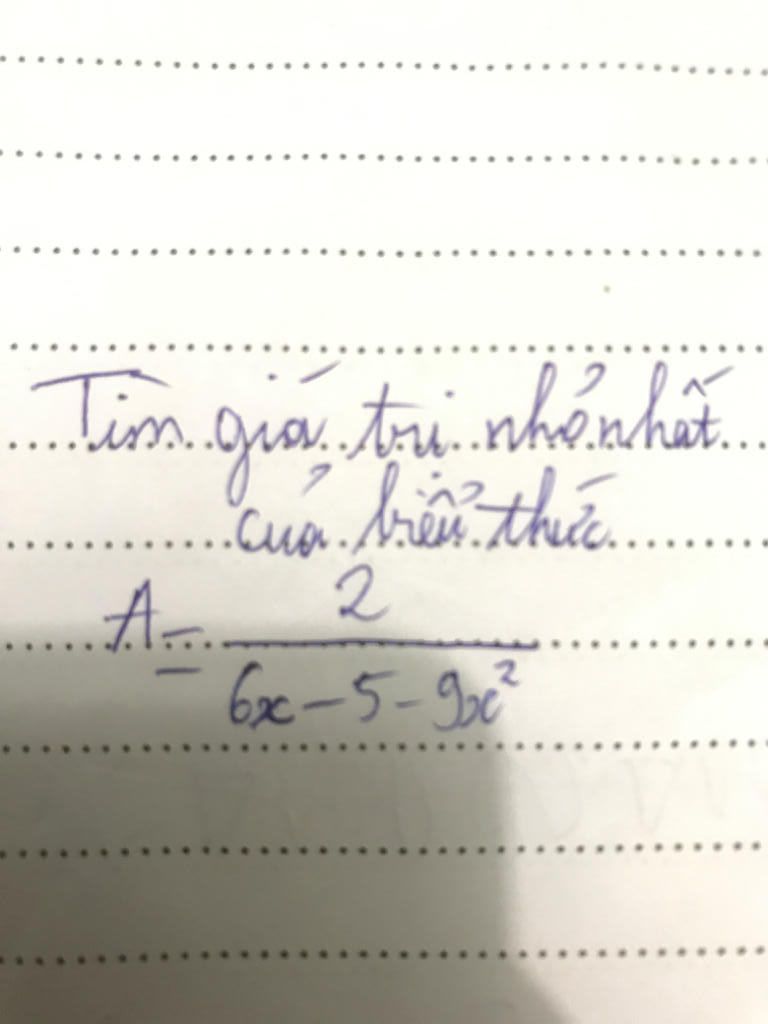 Tìm giá trị nhỏ nhất
của biểu thức
A = \frac{2}{6x - 5 - 9x^2}